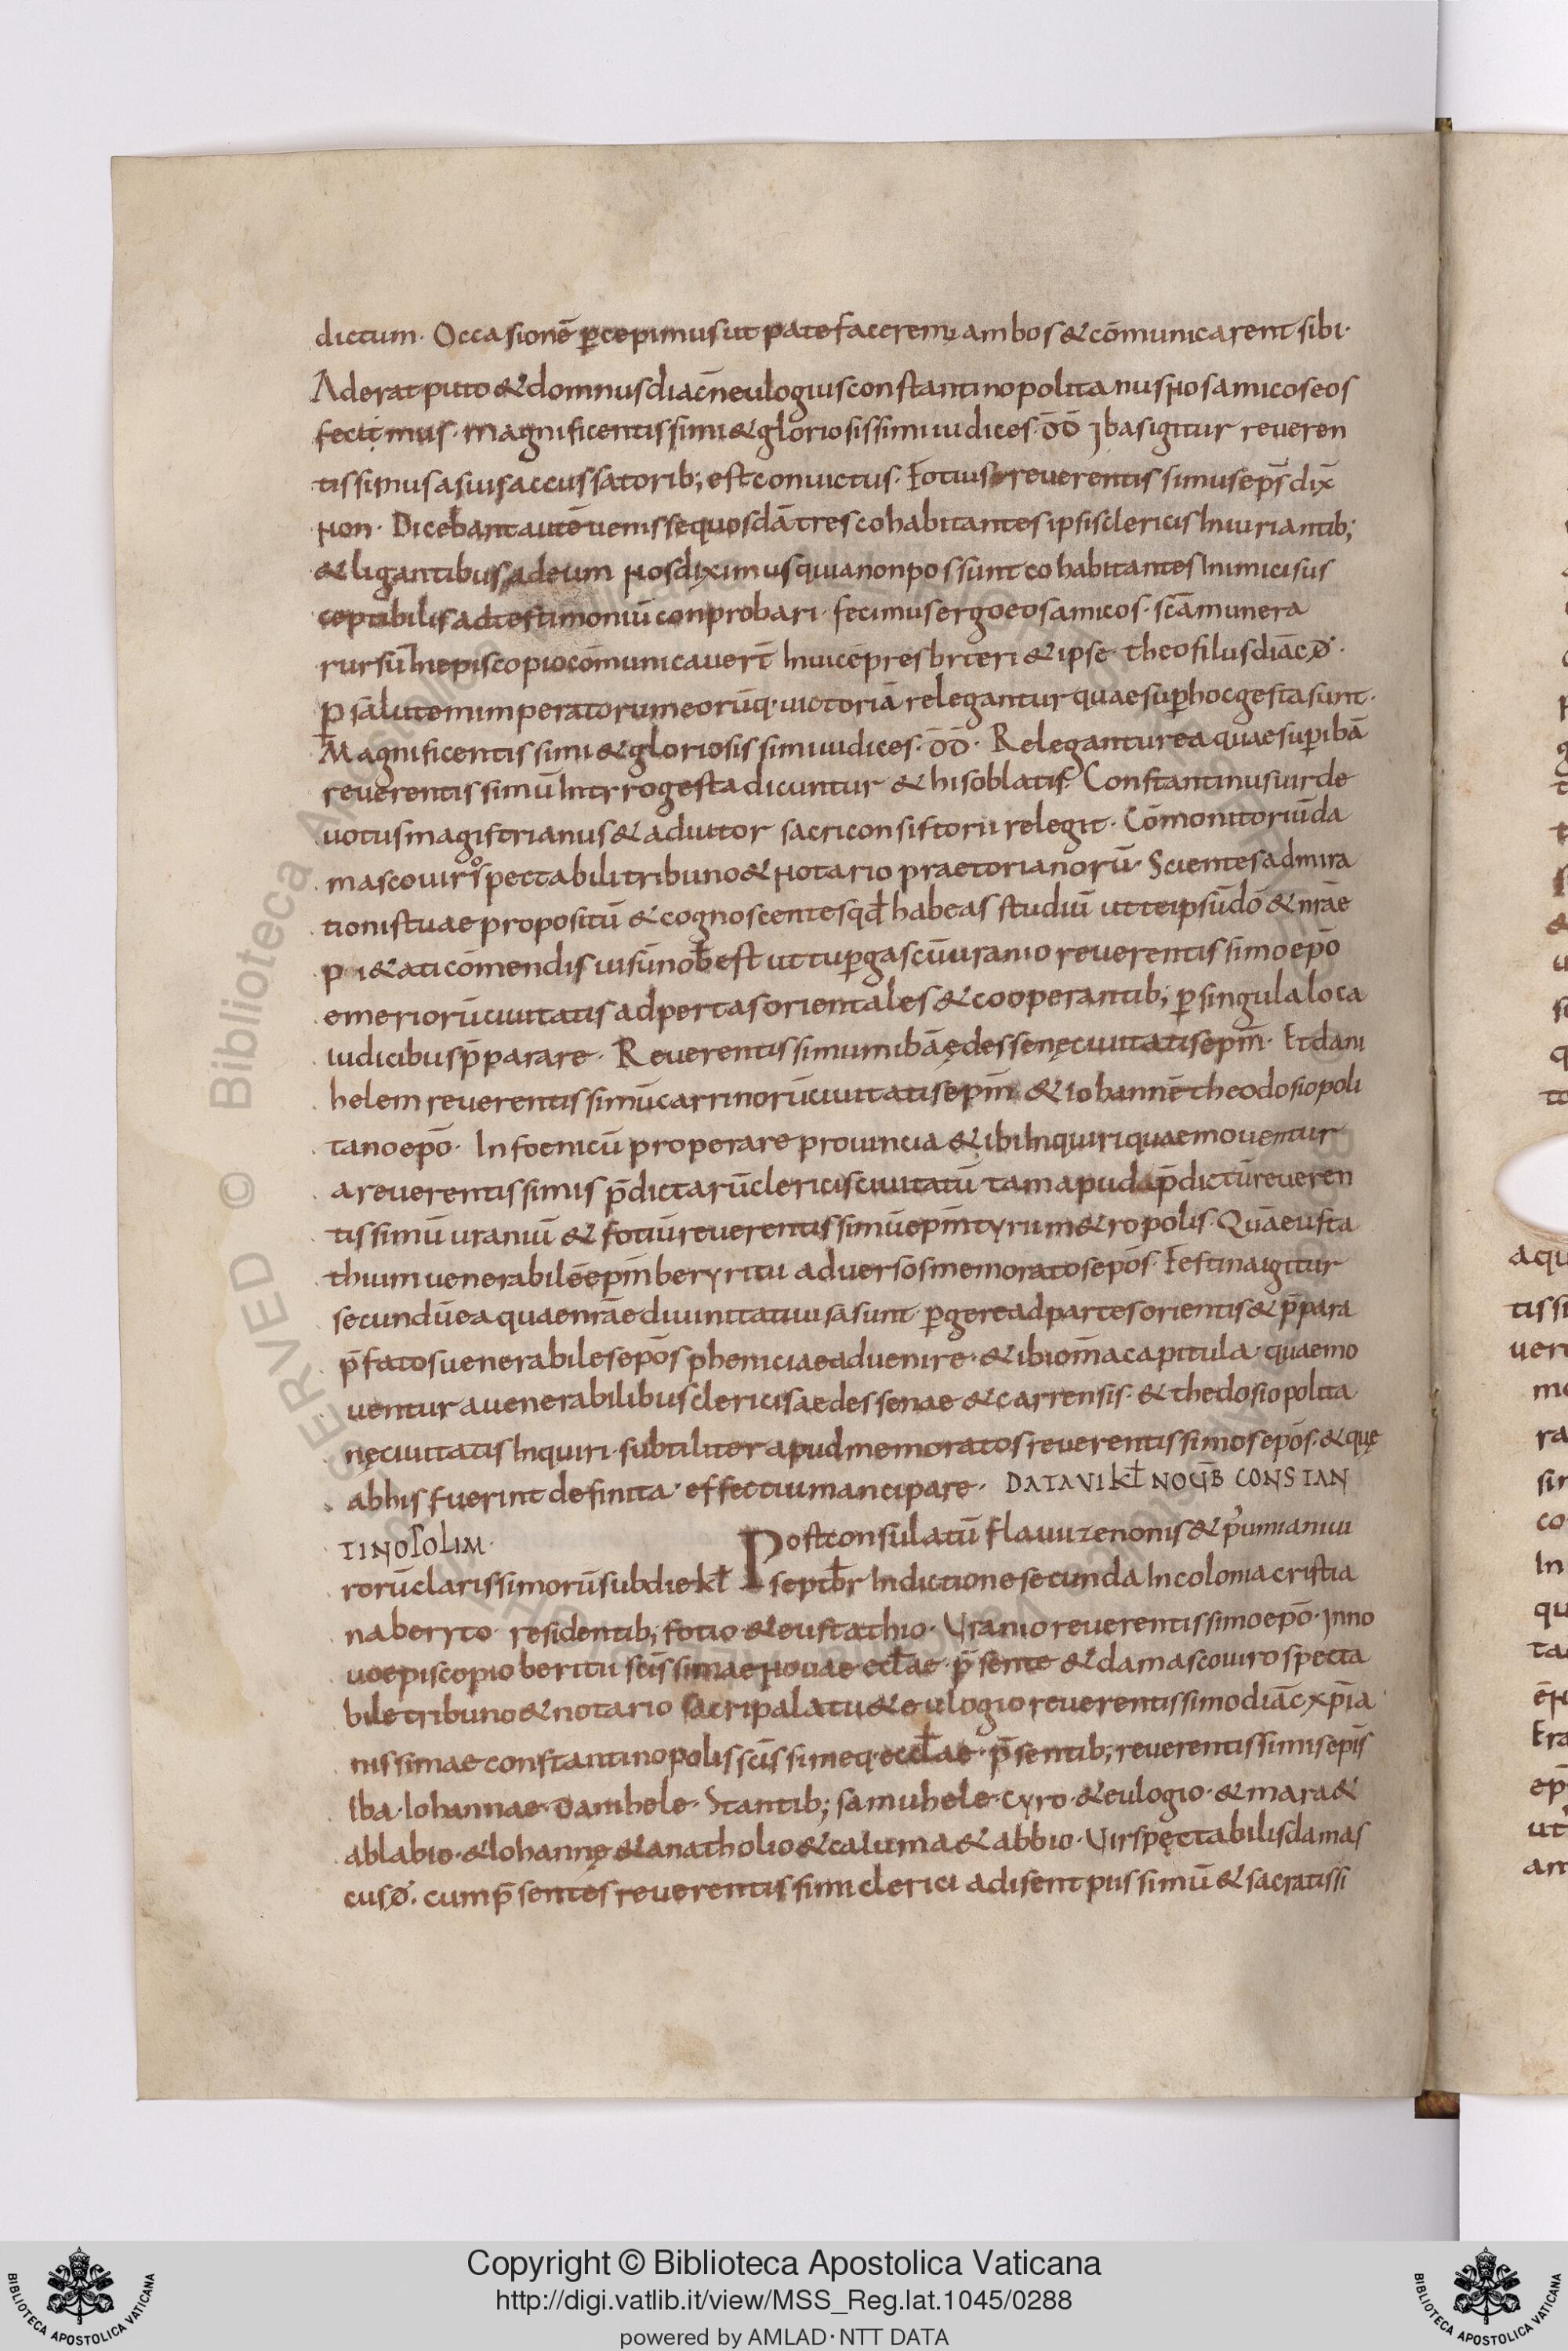 dictum· Occasionē ꝑcepimus ut patefaceremꝰ ambos & cōmunicarent sibi·
Aderat puto & domnus diacn̄ eulogius constantinopolitanus Nos amicos eos
fecimus· magnificentissimi & gloriosissimi iudices· d̄d̄ Ibas igitur reveren
tissimus a suis accussatorib; est convictus· Fotius reverentissimus ep̄s dix̄
Non· Dicebant autē venisse quosdā tres cohabitantes ipsis clericis Iniuriantib;
& ligantibus ad eum Nos diximus quia non possunt cohabitantes Inimici sus
ceptibilis ad testimoniū conprobari· fecimus ergo eos amicos· scā munera
rursū In episcopio cōmunicaverī Invicē presbrīteri & ipse· theofilus diāc đ·
P salutem imperatorum eorūq· victoriā relegantur quae suꝑ hoc gesta sunt·
Magnificentissimi & gloriosissimi iudices· d̄d̄· Relegantur ea quae suꝑ ibā
reverentissimū Intrrogesta dicuntur & his oblatis Constantinus vir de
votus magistrianus & adiutor sacri consistorii relegit· Cōmonitoriū da
masco viro spectabili tribuno & Notario praetorianorū· Scientes admira
tionis tuae propositū & cognoscentes qđ habeas studiū ut te ipsū dō & nrāe
& ati cōmendis visū nob̄ est ut tu ꝑgas cū uranio reverentissimo epō
emeriorū civitatis ad pertas orientales & cooperantib; ꝑ singula loca
iudicibus p̄parare· Reverentissimum ibā ędessenę civitatis epm̄· Et dani
helem reverentissimū carrinorū civitatis epm̄ & Iohannē theodosiopoli
tano epō· In foenicū properare provincia & ibi Inquiri quae moventur
a reverentissimis p̄dictarū clericis civitatū tam apud p̄dictū reveren
tissimū uraniū & fotiū reverentissimū epm̄ tyrum &ropolis· Quā eusta
thium venerabilē epm̄ beryritu adversos memoratos epōs· Festina igitur
secundū ea quae nrāe divinitati visa sunt ꝑgere ad partes orientis & p̄para
p̄fatos venerabiles epōs pheniciae advenire· & ibi om̄a capitula· quae mo
ventur a venerabilibus clericis aedessenae & carrensis· & thedosiopolita
nę civitatis Inquiri· subtiliter apud memoratos reverentissimos epōs· & quę
ab his fuerint definita· effectui mancipare· DATA VI kl̄ NOUB̄ CONSTAN
TINOPOLIM·
Post consulatū flavii zenonis & p'umiani vi
rorū clarissimorū sub die kl̄ septb̄r Indictione secunda In colonia cristia
na beryto· residentib; fotio· & eustathio· Uranio reverentissimo epō· Inno
vo episcopio beritu scīssimae Novae eccl̄ae· p̄sente & damasco viro specta
bile tribuno & notario sacri palatu & eulogio reverentissimo diāc xp̄ia
nissimae constantinopolis scīssimeq· eccl̄ae· p̄sentib; reverentissimis epīs
Iba· Iohannae· danihele· Stantib; samuhele· cyro· & eulogio· & mara &
ablabio· & Iohannę & anatholio & caiuma & abbio· Vir spęctabilis damas
cus đ· cum p̄sentes reverentissimi clerici adisent piissimū & sacratissi